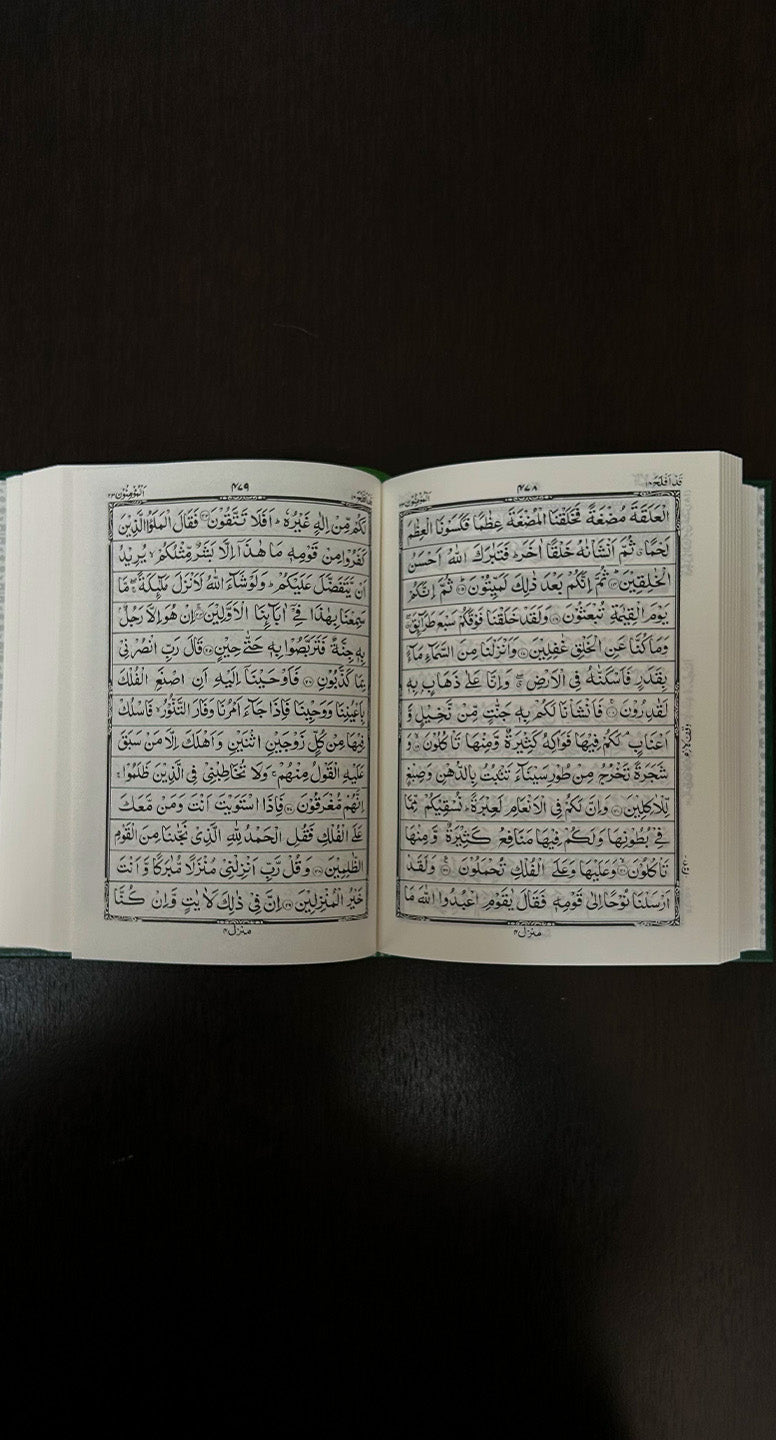 قد افلح ١٨
٤٧٨
المؤمنون ٢٣
الْعَلَقَةَ مُضْغَةً فَخَلَقْنَا الْمُضْغَةَ عِظٰمًا فَكَسَوْنَا الْعِظٰمَ
لَحْمًا ۗ ثُمَّ اَنْشَاْنٰهُ خَلْقًا اٰخَرَ ؕ فَتَبٰرَكَ اللّٰهُ اَحْسَنُ
الْخٰلِقِيْنَ ﴿۱۴﴾ ثُمَّ اِنَّكُمْ بَعْدَ ذٰلِكَ لَمَيِّتُوْنَ ﴿۱۵﴾ ثُمَّ اِنَّكُمْ
يَوْمَ الْقِيٰمَةِ تُبْعَثُوْنَ ﴿۱۶﴾ وَلَقَدْ خَلَقْنَا فَوْقَكُمْ سَبْعَ طَرَآئِقَ ۖ
وَمَا كُنَّا عَنِ الْخَلْقِ غٰفِلِيْنَ ﴿۱۷﴾ وَاَنْزَلْنَا مِنَ السَّمَآءِ مَآءًۢ
بِقَدَرٍ فَاَسْكَنّٰهُ فِى الْاَرْضِ ۖ وَاِنَّا عَلٰى ذَهَابٍۭ بِهٖ
لَقٰدِرُوْنَ ﴿۱۸﴾ فَاَنْشَاْنَا لَكُمْ بِهٖ جَنّٰتٍ مِّنْ نَّخِيْلٍ وَّ
اَعْنَابٍ ۘ لَكُمْ فِيْهَا فَوَاكِهُ كَثِيْرَةٌ وَّمِنْهَا تَاْكُلُوْنَ ﴿۱۹﴾ وَ
شَجَرَةً تَخْرُجُ مِنْ طُوْرِ سَيْنَآءَ تَنْۢبُتُ بِالدُّهْنِ وَصِبْغٍ
لِّلْاٰكِلِيْنَ ﴿۲۰﴾ وَاِنَّ لَكُمْ فِى الْاَنْعَامِ لَعِبْرَةً ؕ نُسْقِيْكُمْ مِّمَّا
فِىْ بُطُوْنِهَا وَلَكُمْ فِيْهَا مَنَافِعُ كَثِيْرَةٌ وَّمِنْهَا
تَاْكُلُوْنَ ﴿۲۱﴾ وَعَلَيْهَا وَعَلَى الْفُلْكِ تُحْمَلُوْنَ ﴿۲۲﴾ وَلَقَدْ
اَرْسَلْنَا نُوْحًا اِلٰى قَوْمِهٖ فَقَالَ يٰقَوْمِ اعْبُدُوا اللّٰهَ مَا
منزل ٤
٤٧٩
المؤمنون ٢٣
لَكُمْ مِّنْ اِلٰهٍ غَيْرُهٗ ؕ اَفَلَا تَتَّقُوْنَ ﴿۲۳﴾ فَقَالَ الْمَلَؤُا الَّذِيْنَ
كَفَرُوْا مِنْ قَوْمِهٖ مَا هٰذَاۤ اِلَّا بَشَرٌ مِّثْلُكُمْ ۙ يُرِيْدُ
اَنْ يَّتَفَضَّلَ عَلَيْكُمْ ؕ وَلَوْ شَآءَ اللّٰهُ لَاَنْزَلَ مَلٰٓئِكَةً ۖ مَّا
سَمِعْنَا بِهٰذَا فِىْۤ اٰبَآئِنَا الْاَوَّلِيْنَ ﴿۲۴﴾ اِنْ هُوَ اِلَّا رَجُلٌۢ
بِهٖ جِنَّةٌ فَتَرَبَّصُوْا بِهٖ حَتّٰى حِيْنٍ ﴿۲۵﴾ قَالَ رَبِّ انْصُرْنِىْ
بِمَا كَذَّبُوْنِ ﴿۲۶﴾ فَاَوْحَيْنَاۤ اِلَيْهِ اَنِ اصْنَعِ الْفُلْكَ
بِاَعْيُنِنَا وَوَحْيِنَا فَاِذَا جَآءَ اَمْرُنَا وَفَارَ التَّنُّوْرُ ۙ فَاسْلُكْ
فِيْهَا مِنْ كُلٍّ زَوْجَيْنِ اثْنَيْنِ وَاَهْلَكَ اِلَّا مَنْ سَبَقَ
عَلَيْهِ الْقَوْلُ مِنْهُمْ ۚ وَلَا تُخَاطِبْنِىْ فِى الَّذِيْنَ ظَلَمُوْا ۚ
اِنَّهُمْ مُّغْرَقُوْنَ ﴿۲۷﴾ فَاِذَا اسْتَوَيْتَ اَنْتَ وَمَنْ مَّعَكَ
عَلَى الْفُلْكِ فَقُلِ الْحَمْدُ لِلّٰهِ الَّذِىْ نَجّٰىنَا مِنَ الْقَوْمِ
الظّٰلِمِيْنَ ﴿۲۸﴾ وَقُلْ رَّبِّ اَنْزِلْنِىْ مُنْزَلًا مُّبٰرَكًا وَّاَنْتَ
خَيْرُ الْمُنْزِلِيْنَ ﴿۲۹﴾ اِنَّ فِىْ ذٰلِكَ لَاٰيٰتٍ وَّاِنْ كُنَّا
منزل ٤